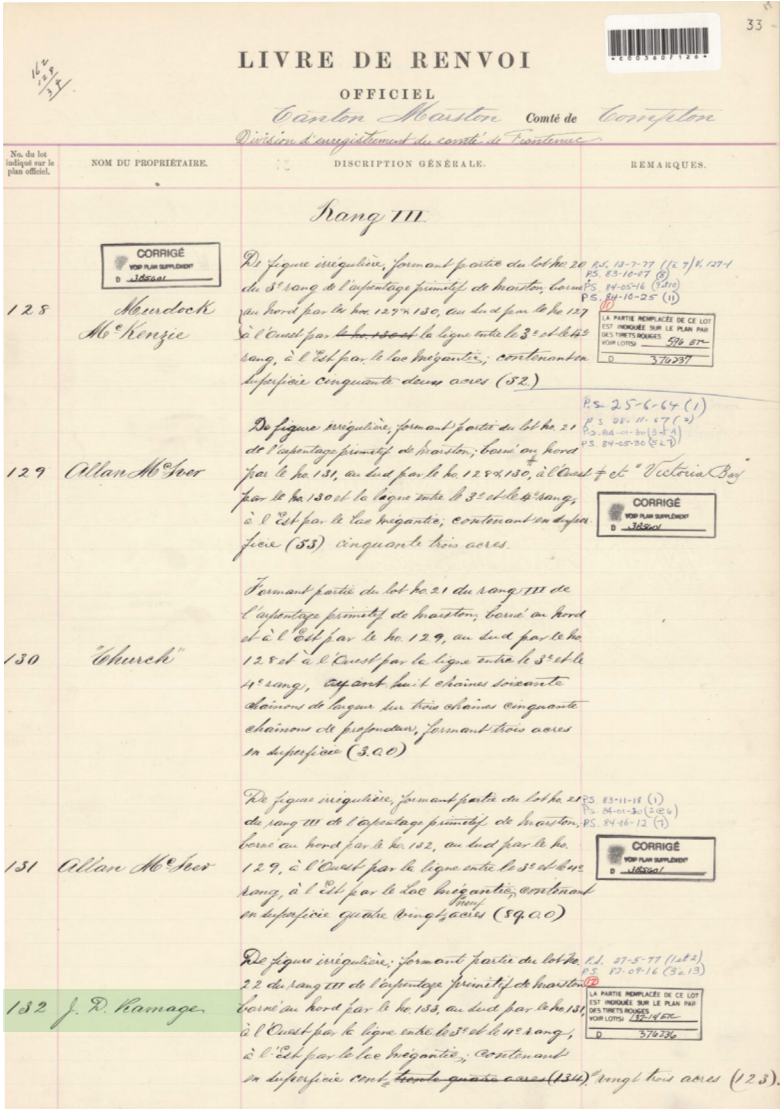 33
*C003607126*
162
128
34
LIVRE DE RENVOI
OFFICIEL
Canton Marston Comté de Compton
Division d'enregistrement du comté de Frontenac
No. du lot indiqué sur le plan officiel.
NOM DU PROPRIÉTAIRE.
DISCRIPTION GÉNÉRALE.
REMARQUES.
Rang III
CORRIGÉ
VOIR PLAN SUPPLÉMENT
D 385601
128 Murdock
McKenzie
De figure irrégulière, formant partie du lot No. 20
du 3e rang de l'arpentage primitif de Marston, borné
au Nord par les Nos. 129 & 130, au Sud par le No 127
à l'Ouest par le No. 130 et la ligne entre le 3e et le 4e
rang, à l'Est par le lac Mégantic; contenant en
superficie cinquante deux acres (52)
P.S. 83-10-07 (8)
P.S. 84-05-16 (9 à 10)
P.S. 84-10-25 (11)
(11)
LA PARTIE REMPLACÉE DE CE LOT
EST INDIQUÉE SUR LE PLAN PAR
DES TIRETS ROUGES
VOIR LOT(S) 596 ETC
D 376237
129 Allan McIver
De figure irrégulière, formant partie du lot No. 21
de l'arpentage primitif de Marston; borné au Nord
par le No. 131, au Sud par le No. 128 & 130, à l'Ouest
par le No. 130 et la ligne entre le 3e et le 4e rang,
à l'Est par le Lac Mégantic; contenant en super-
ficie (53) cinquante trois acres.
P.S. 25-6-64 (1)
P.S. 28-11-67 (2)
P.S. 84-01-30 (3 à 4)
P.S. 84-05-30 (5 à 7)
‡ et "Victoria Bay"
CORRIGÉ
VOIR PLAN SUPPLÉMENT
D 385601
130 "Church"
Formant partie du lot No. 21 du rang III de
l'arpentage primitif de Marston, borné au Nord
et à l'Est par le No. 129, au Sud par le No.
128 et à l'Ouest par la ligne entre le 3e et le
4e rang, ayant huit chaînes soixante
chaînons de largeur sur trois chaînes cinquante
chaînons de profondeur, formant trois acres
en superficie (3.0.0)
131 Allan McIver
De figure irrégulière, formant partie du lot No. 21
du rang III de l'arpentage primitif de Marston,
borné au Nord par le No. 132, au Sud par le No.
129, à l'Ouest par la ligne entre le 3e et le 4e
rang, à l'Est par le Lac Mégantic, contenant
en superficie quatre vingt neuf acres (89.0.0)
P.S. 83-11-18 (1)
P.S. 84-01-30 (2 @ 6)
P.S. 84-06-12 (7)
CORRIGÉ
VOIR PLAN SUPPLÉMENT
D 385601
132 J. D. Ramage
De figure irrégulière; formant partie du lot No.
22 du rang III de l'arpentage primitif de Marston
borné au Nord par le No. 133, au Sud par le No 131,
à l'Ouest par la ligne entre le 3e et le 4e rang,
à l'Est par le lac Mégantic; contenant
en superficie cent, trente quatre acres (134) vingt trois acres (123).
P.S. 27-5-77 (1 et 2)
P.S. 83-09-16 (3 à 13)
LA PARTIE REMPLACÉE DE CE LOT
EST INDIQUÉE SUR LE PLAN PAR
DES TIRETS ROUGES
VOIR LOT(S) 132-14 ETC
D 376236